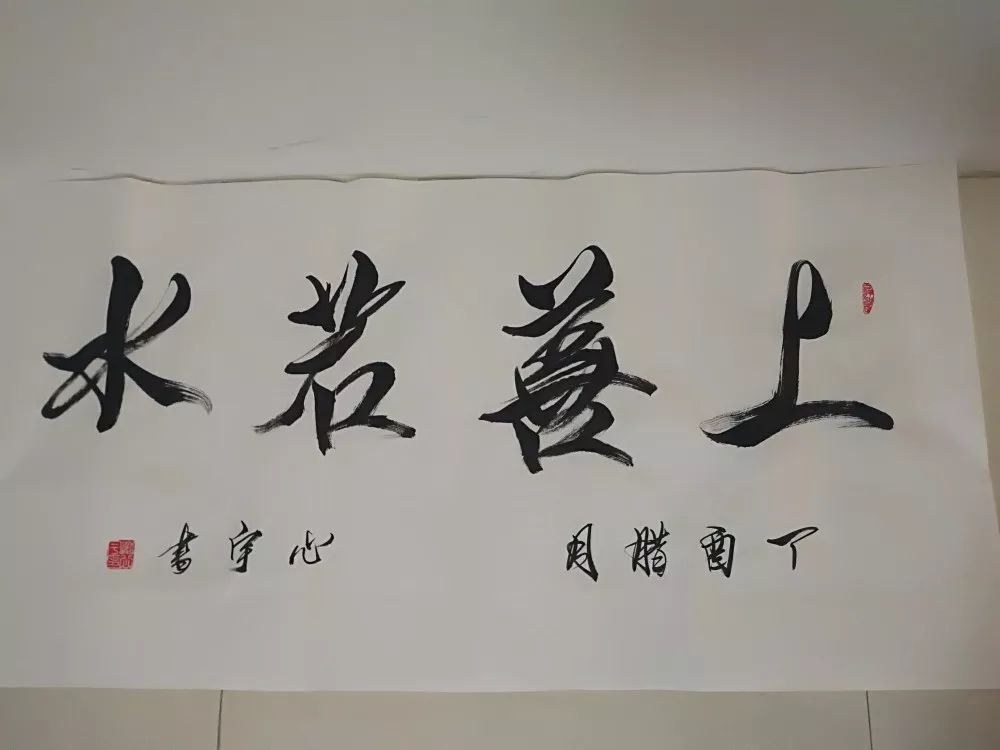 上善若水
丁酉腊月
心宇書